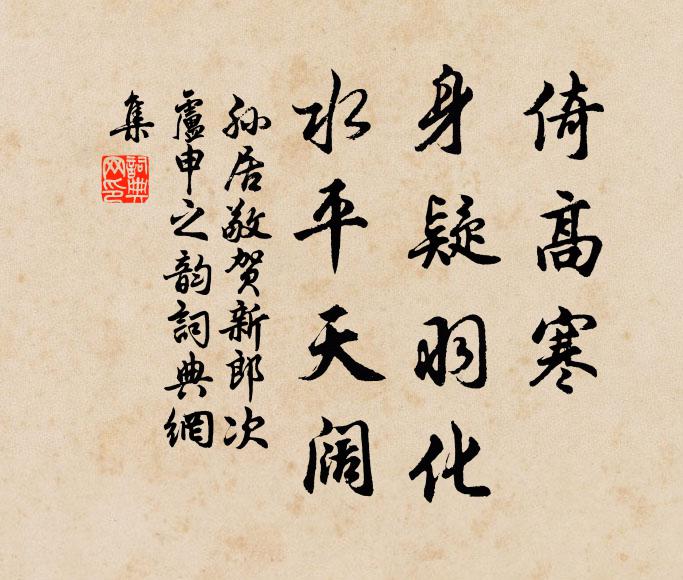 倚高寒
身疑羽化
水平天阔
孙居敬贺新郎次
盧申之韵詞典網
集
詞典网印